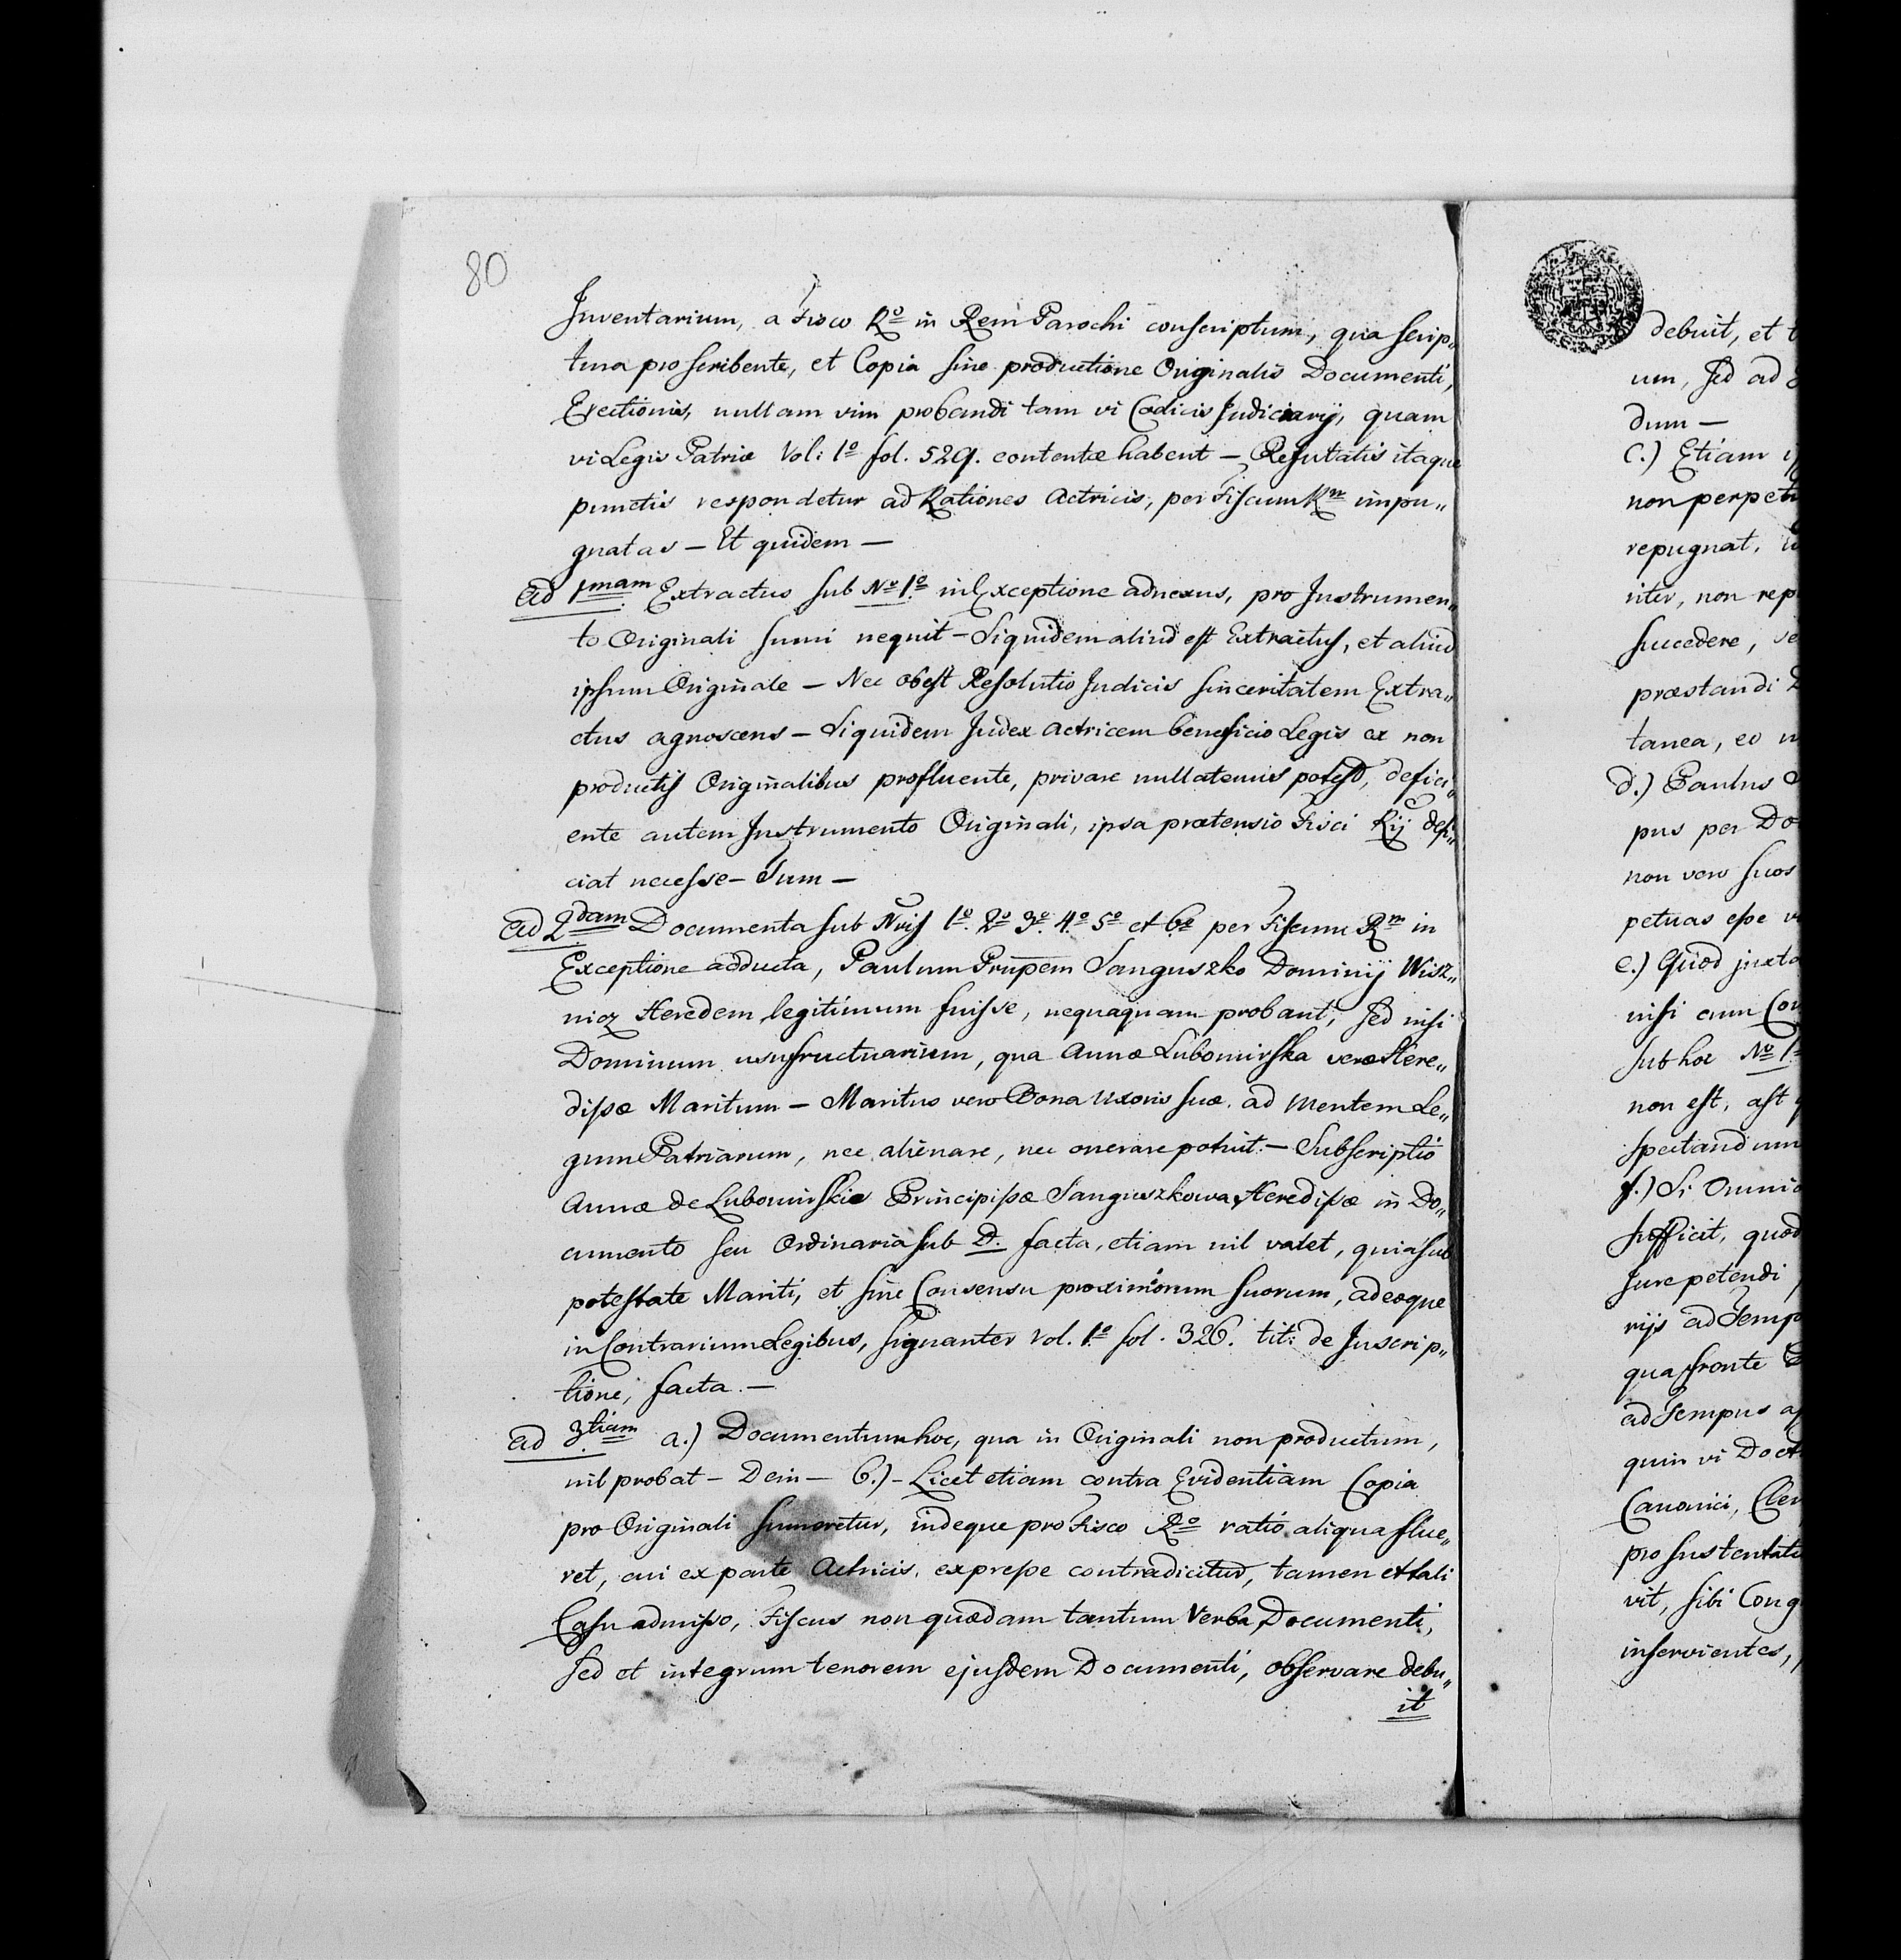 80
Inventarium, a Fisco Ro in Rem Parochi conscriptum, qua scrip„
tura pro scribente, et Copia sine productione Originalis Documenti,
Erectionis, nullam vim probandi tam vi Codicis Judiciarij, quam
vi Legis Patriæ Vol: 1o fol. 529. contentæ habent – Refutatis itaque
punctis respondetur ad Rationes Actricis, per Fiscum Rm impu„
gnatas – Et quidem –
Ad 1mam Extractus sub No 1o in Exceptione adnexus, pro Instrumen„
to Originali sumi nequit – Siquidem aliud est Extractus, et aliud
ipsum Originale – Nec obest Resolutio Judicis sinceritatem Extra„
ctus agnoscens – Siquidem Judex Actricem beneficio Legis ex non
productis Originalibus profluente, privare nullatenus potest, defici„
ente autem Instrumento Originali, ipsa prætensio Fisci Rij defi„
ciat necesse – Tum –
Ad 2dam Documenta sub Nris 1o. 2o 3o. 4o. 5o et 6o per Fiscum Rm in
Exceptione adducta, Paulum Prupem Sanguszko Dominij Wisz„
nicz Heredem legitimum fuisse, nequaquam probant, sed nisi
Dominum usufructuarium, qua Annæ Lubomirska veræ Here„
dissæ Maritum – Maritus vero Bona Uxoris suæ, ad mentem Le„
gum Patriarum, nec alienare, nec onerare potuit. – Subscriptio
Annæ de Lubomirskie Principissæ Sanguszkowa Heredissæ in Do„
cumento seu Ordinaria sub D. facta, etiam nil valet, quia sub
potestate Mariti, et sine Consensu proximiorum suorum, adeoque
in Contrarium Legibus, signanter Vol. 1o fol. 326. tit: de Inscrip„
tione, facta. –
Ad 3tiam a.) Documentum hoc, qua in Originali non productum,
nil probat – Dein – b.) – Licet etiam contra Evidentiam Copia
pro Originali sumeretur, indeque pro Fisco Ro ratio aliqua flue„
ret, cui ex parte Actricis, expresse contradicitur, tamen et tali
Casu admisso, Fiscus non quædam tantum Verba Documenti,
sed et integrum tenorem ejusdem Documenti, observare debu„
it
debuit, et
um, sed ad
dum –
c.) Etiam
non perpet
repugnat,
riter, non rep
succedere,
præstandi
tanea, eo
d.) Paulus
pus per Do
non vero suos
petuas esse
e.) Quod juxta
nisi cum Con
sub hoc No 1
non est, ast
spectandum
f.) Si Omnia
sufficit, quod
Jure petendi
rijs ad Temp
qua fronte
ad Tempus
quin vi Doct
Canonici, Cler
pro sustentati
vit, sibi Cong
inservientes,